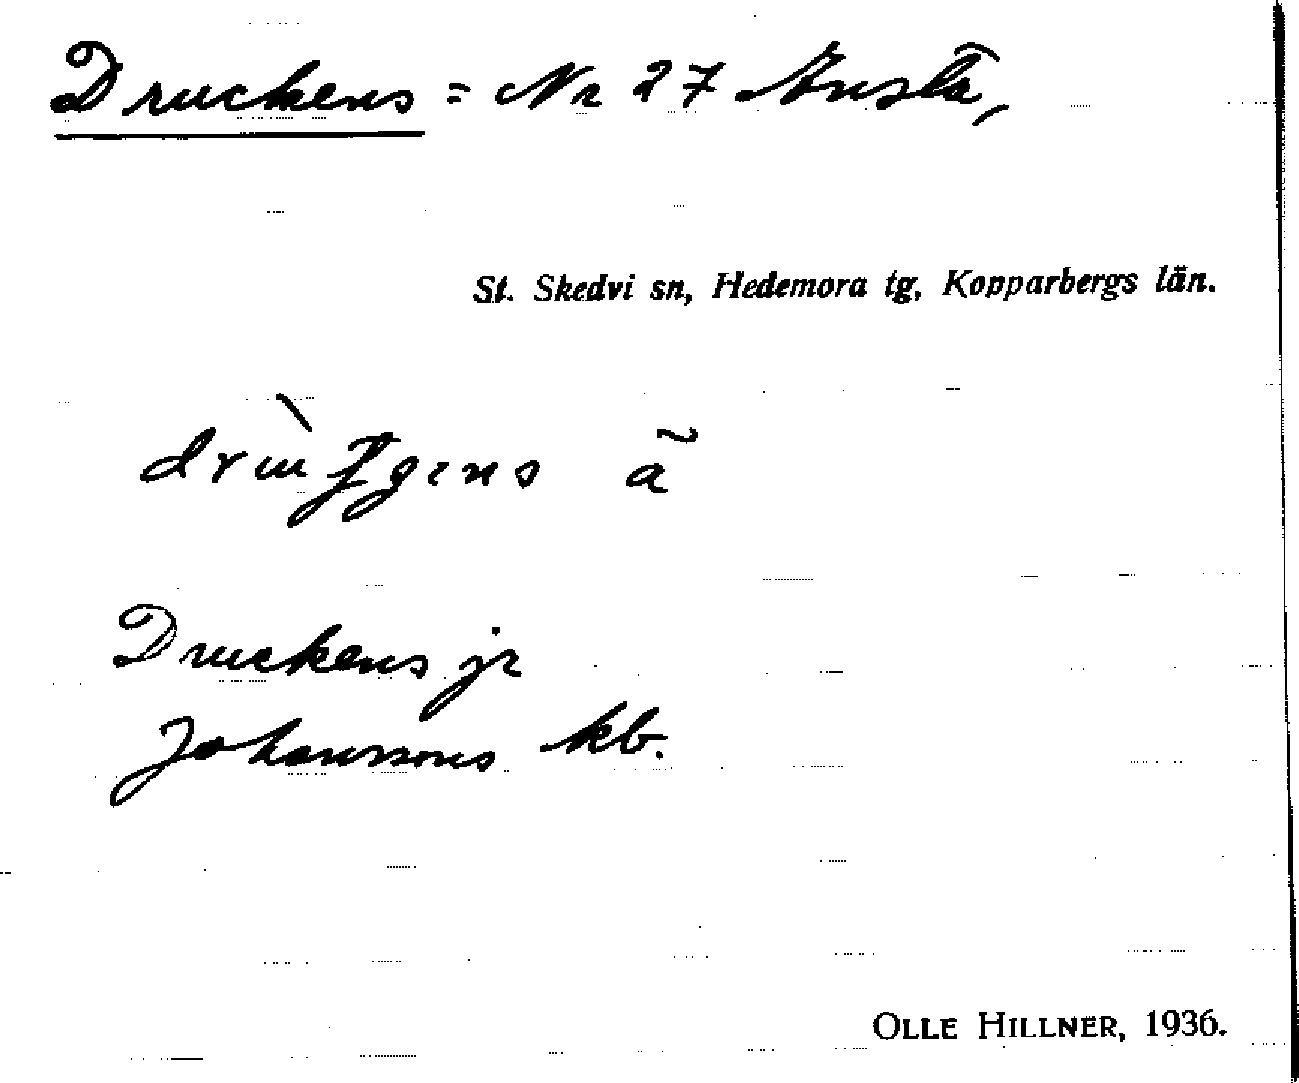 Druckens = Nr 27 Ansta,
St. Skedvi sn, Hedemora tg, Kopparbergs län.
Druckens jr
Johanssons kb.
OLLE HILLNER, 1936.